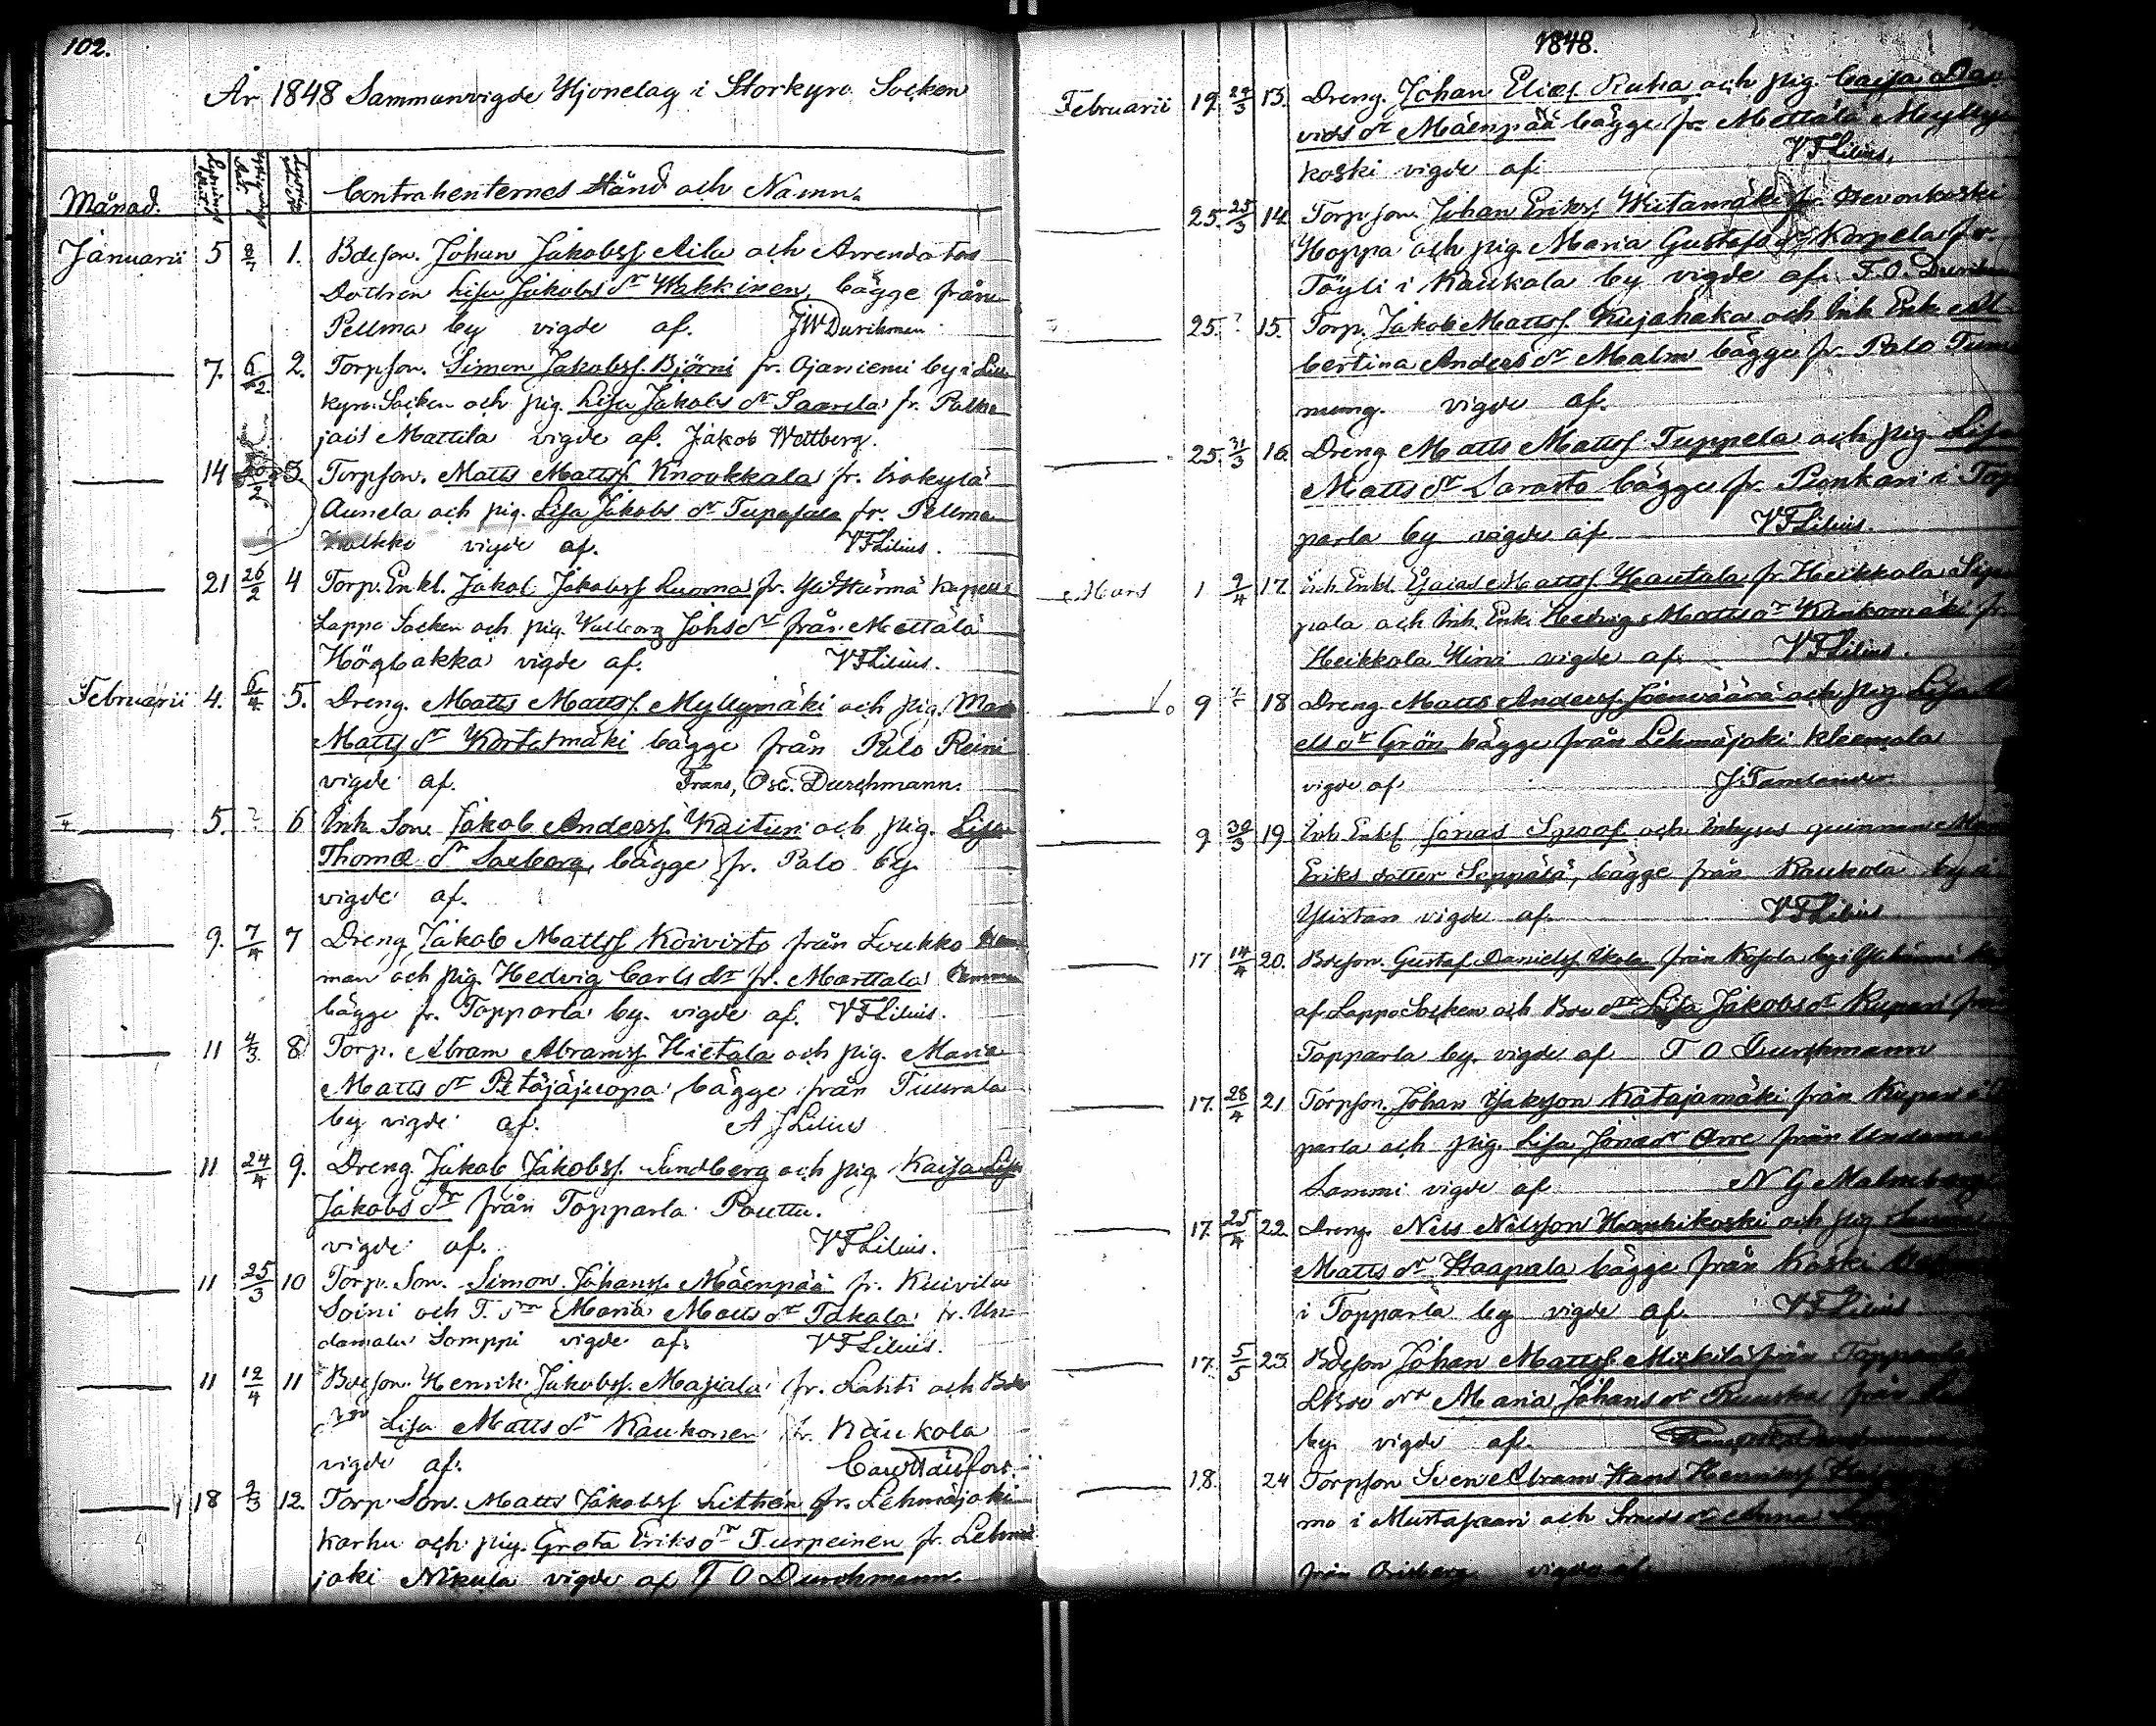 102.
År 1848 Sammanvigde Hjonelag i Storkyro Socken
Månad.
Contrahenternes Stånd och Namn.
Januarii 5 1. Bdeson. Johan Jakobss. Aila och Arrendators
Dottren Lisa Jakobs dr Wakkinen, bägge från
Pellma by vigde af. JW Durchman
7. 6/2. 2. Torpson. Simon Jakobss. Björni fr. Ojaniemi by i
kyro Socken och pig. Lisa Jakobs dr Saarela fr. Palho
jais Mattila vigde af. Jakob Wettberg.
14 3. Torpson. Matts Mattss. Knookkala fr. Isokylä
Aunela och pig. Lisa Jakobs dr fr. Pellma
vigde af. VFLilius.
21 26/2 4 Torp. Enkl. Jakob Jakobss Luoma fr. Yli Härmä Kapell
Lappo Socken och pig. Walborg Johs dr från Mettälä
Högbakka vigde af. VFLilius.
Februarii 4. 6/4 5. Dreng. Matts Mattss. Myllymäki och pig. Maria
Matts dr Kortetmäki bägge från Palo Reini
vigde af. Frans, Osc. Durchmann.
5. ? 6 Inh. Son. Jakob Anderss. Kaituri och pig. Lisa
Thomæ dr Saxberg, bägge fr. Palo by
vigde af.
9. 7/4 7 Dreng Jakob Mattss Koivisto från Loukko
man och pig. Hedvig Carls dr fr. Marttala
bägge fr. Topparla by. vigde af. VFLilius.
11 4/3. 8 Torp. Abram Abramss. Hietala och pig. Maria
Matts dr Petäjäjuopa bägge från Tuurala
by vigde af. A J Lilius
11 24/4 9. Dreng. Jakob Jakobss. Sandberg och pig. Kaisa Lisa
Jakobs dr från Topparla Pouttu.
vigde af. VFLilius.
11 25/3 10 Torp. Son. Simon Johanss. Mäenpää fr. Kuivila
Soini och T. dr Maria Matts dr Takala fr. Un-
damala Somppi vigde af. VFLilius.
11 12/4 11 Bdeson. Henrik Jakobss. Majiala fr. Lahti och Bde
dr Lisa Matts dr Kaukonen fr. Kaukola
vigde af.
18 2/3 12. Torp. Son. Matts Jakobss Lithén fr. Lehmäjoki
Karhu och pig. Greta Eriks dr Turpeinen fr. Lehmä
joki Nikula vigde af F O Durchmann.
1848.
Februarii 19. 24/3 13. Dreng. Johan Elias Ruha och pig. Caisa Da-
vids dr Mäenpää bägge fr. Mettälä Mylly
koski vigde af. VFLilius.
25. 25/3 14. Torpson. Johan Erikss Wiitamäki fr. Hevonkoski
Hoppa och pig. Maria Gustafs dr Korpela fr.
Töyli i Kaukola by vigde af. F.O. Durchman
25. ? 15. Torp. Jakob Mattss. Kujahaka och Inh. Enk. Al-
bertina Anders dr Malm bägge fr. Palo
vigde af.
25. 31/3 16. Dreng Matts Mattss Tuppela och pig Lisa
Matts dr Sarasto bägge fr. Punkari i Top
parla by vigde af VFLilius.
Mars 1 2/4 17. Inh. Enkl. Esaias Mattss. Hautala fr. Heikkola
pala och Inh. Enk. Hedvig Matts dr fr.
Heikkola Hiiri vigde af. VFLilius.
9 18 Dreng. Matts Anderss. och pig Lisa
els dr Grön bägge från Lehmäjoki Kleemola
vigde af J. Tamlander
9 30/3 19 Inh Enkl Jonas Sproof och Inhyses quinnan
Eriks dotter Seppälä, bägge från Kaukola by
vigde af. VFLilius
17 14/4 20. Bdeson. Gustaf Danielss. från Kosola by i Yli Härmä
af Lappo Socken och Bde dr Lisa Jakobs dr Kupari från
Topparla by. vigde af F O Durchmann
17. 28/4 21 Torpson. Johan Isaksson Katajamäki från Kupari i
parla och pig. Lisa Jonæ dr Orre från Undamala
Sammi vigde af N G Malmberg
17. 25/4 22. Dreng. Nils Nilsson Hanhikoski och pig
Matts dr Haapala bägge från Koski
i Topparla by vigde af. VFLilius
17. 5/5 23. Bdeson Johan Mattss. Mikkilä från Topparla
Bde dr Maria Johans dr från
by. vigde af.
18. 24 Torpson Sven Abram Hans
mo i Mustasaari och Smeds dr Anna
från Orisberg vigde af.